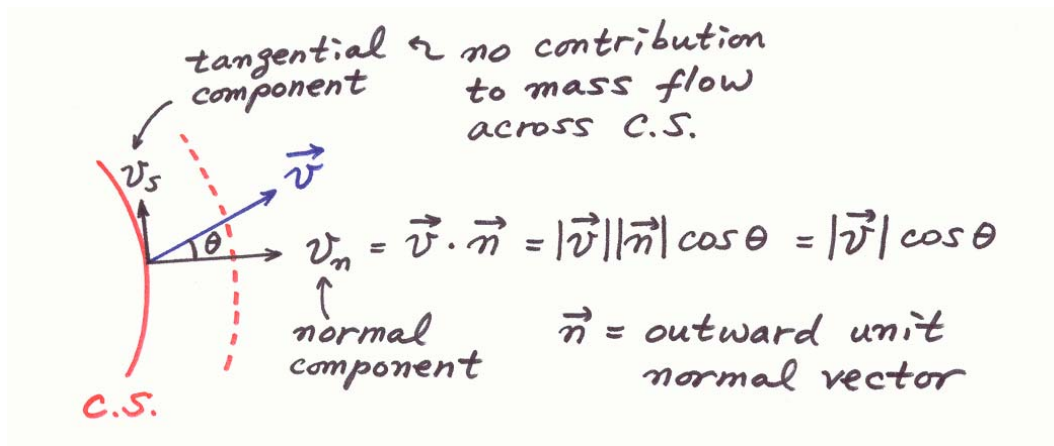 tangential ↰ no contribution
component to mass flow
across C.S.
v_s
v⃗
θ
v_n = v⃗ · n⃗ = |v⃗||n⃗| cos θ = |v⃗| cos θ
normal
component
n⃗ = outward unit
normal vector
C.S.